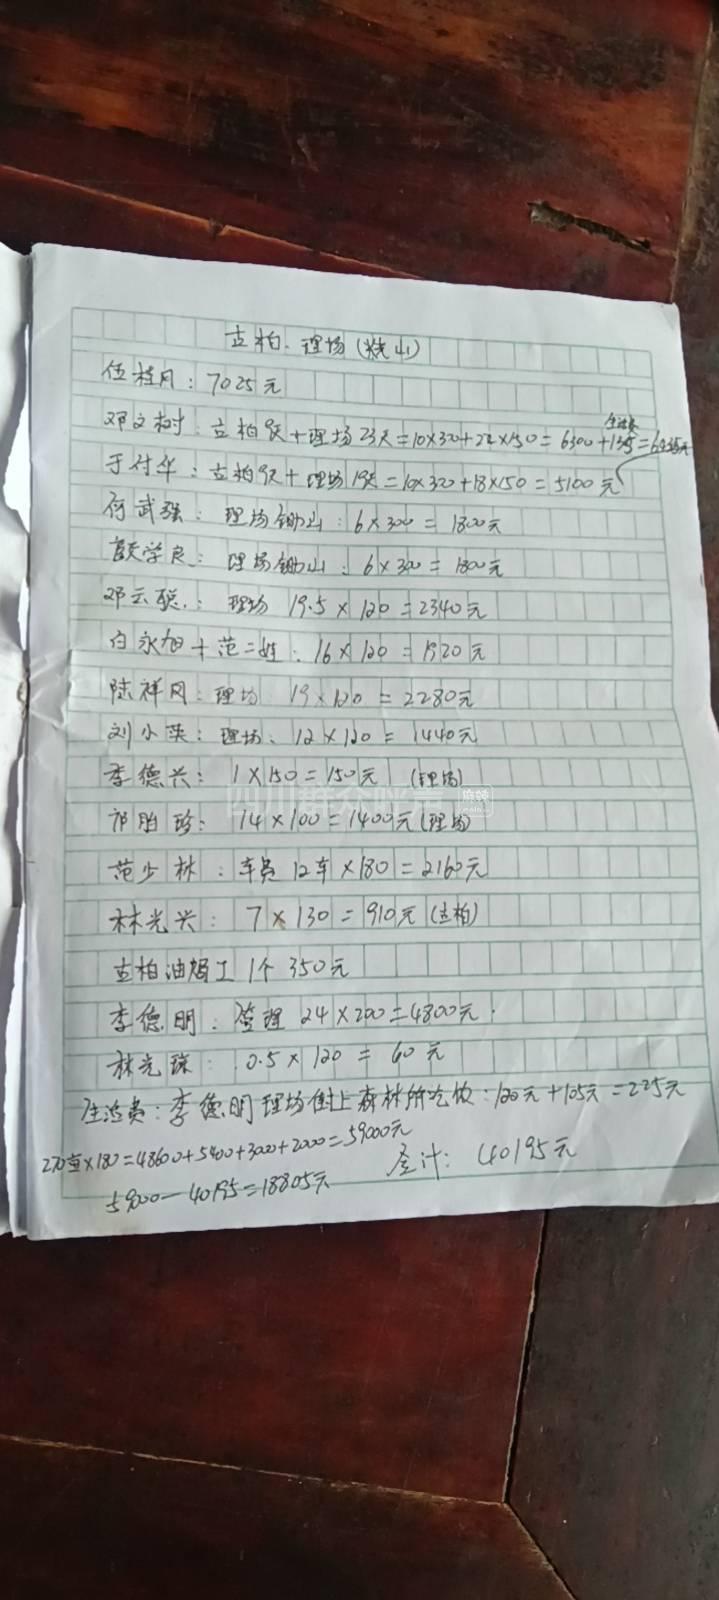 立柏.理场(烧山)
伍桂月:7025元
生活费
邓文树:立柏9天+理场23天=10×320+22×150=6300+135=6435元
于付华:立柏9天+理场19天=10×320+18×150=5100元
何武强:理场锄山:6×300=1800元
学良:理场锄山:6×300=1800元
邓云聪:理场 19.5×120=2340元
白永旭+范二姐:16×120=1920元
陆祥风:理场 19×120=2280元
刘小英:理场:12×120=1440元
李德兴:1×150=150元 (理场)
四川群众呼声 麻辣
邝胎珍:14×100=1400元(理场)
范少林:车费12车×180=2160元
林光兴:7×130=910元(立柏)
立柏油锯工1个350元
李德明:管理24×200=4800元.
林光琼:0.5×120=60元
生活费:李德明理场街上森林所吃饭:120元+105元=225元
270亩×180=4860+5400+3000+2000=59000元
合计:40195元
59000-40195=18805元